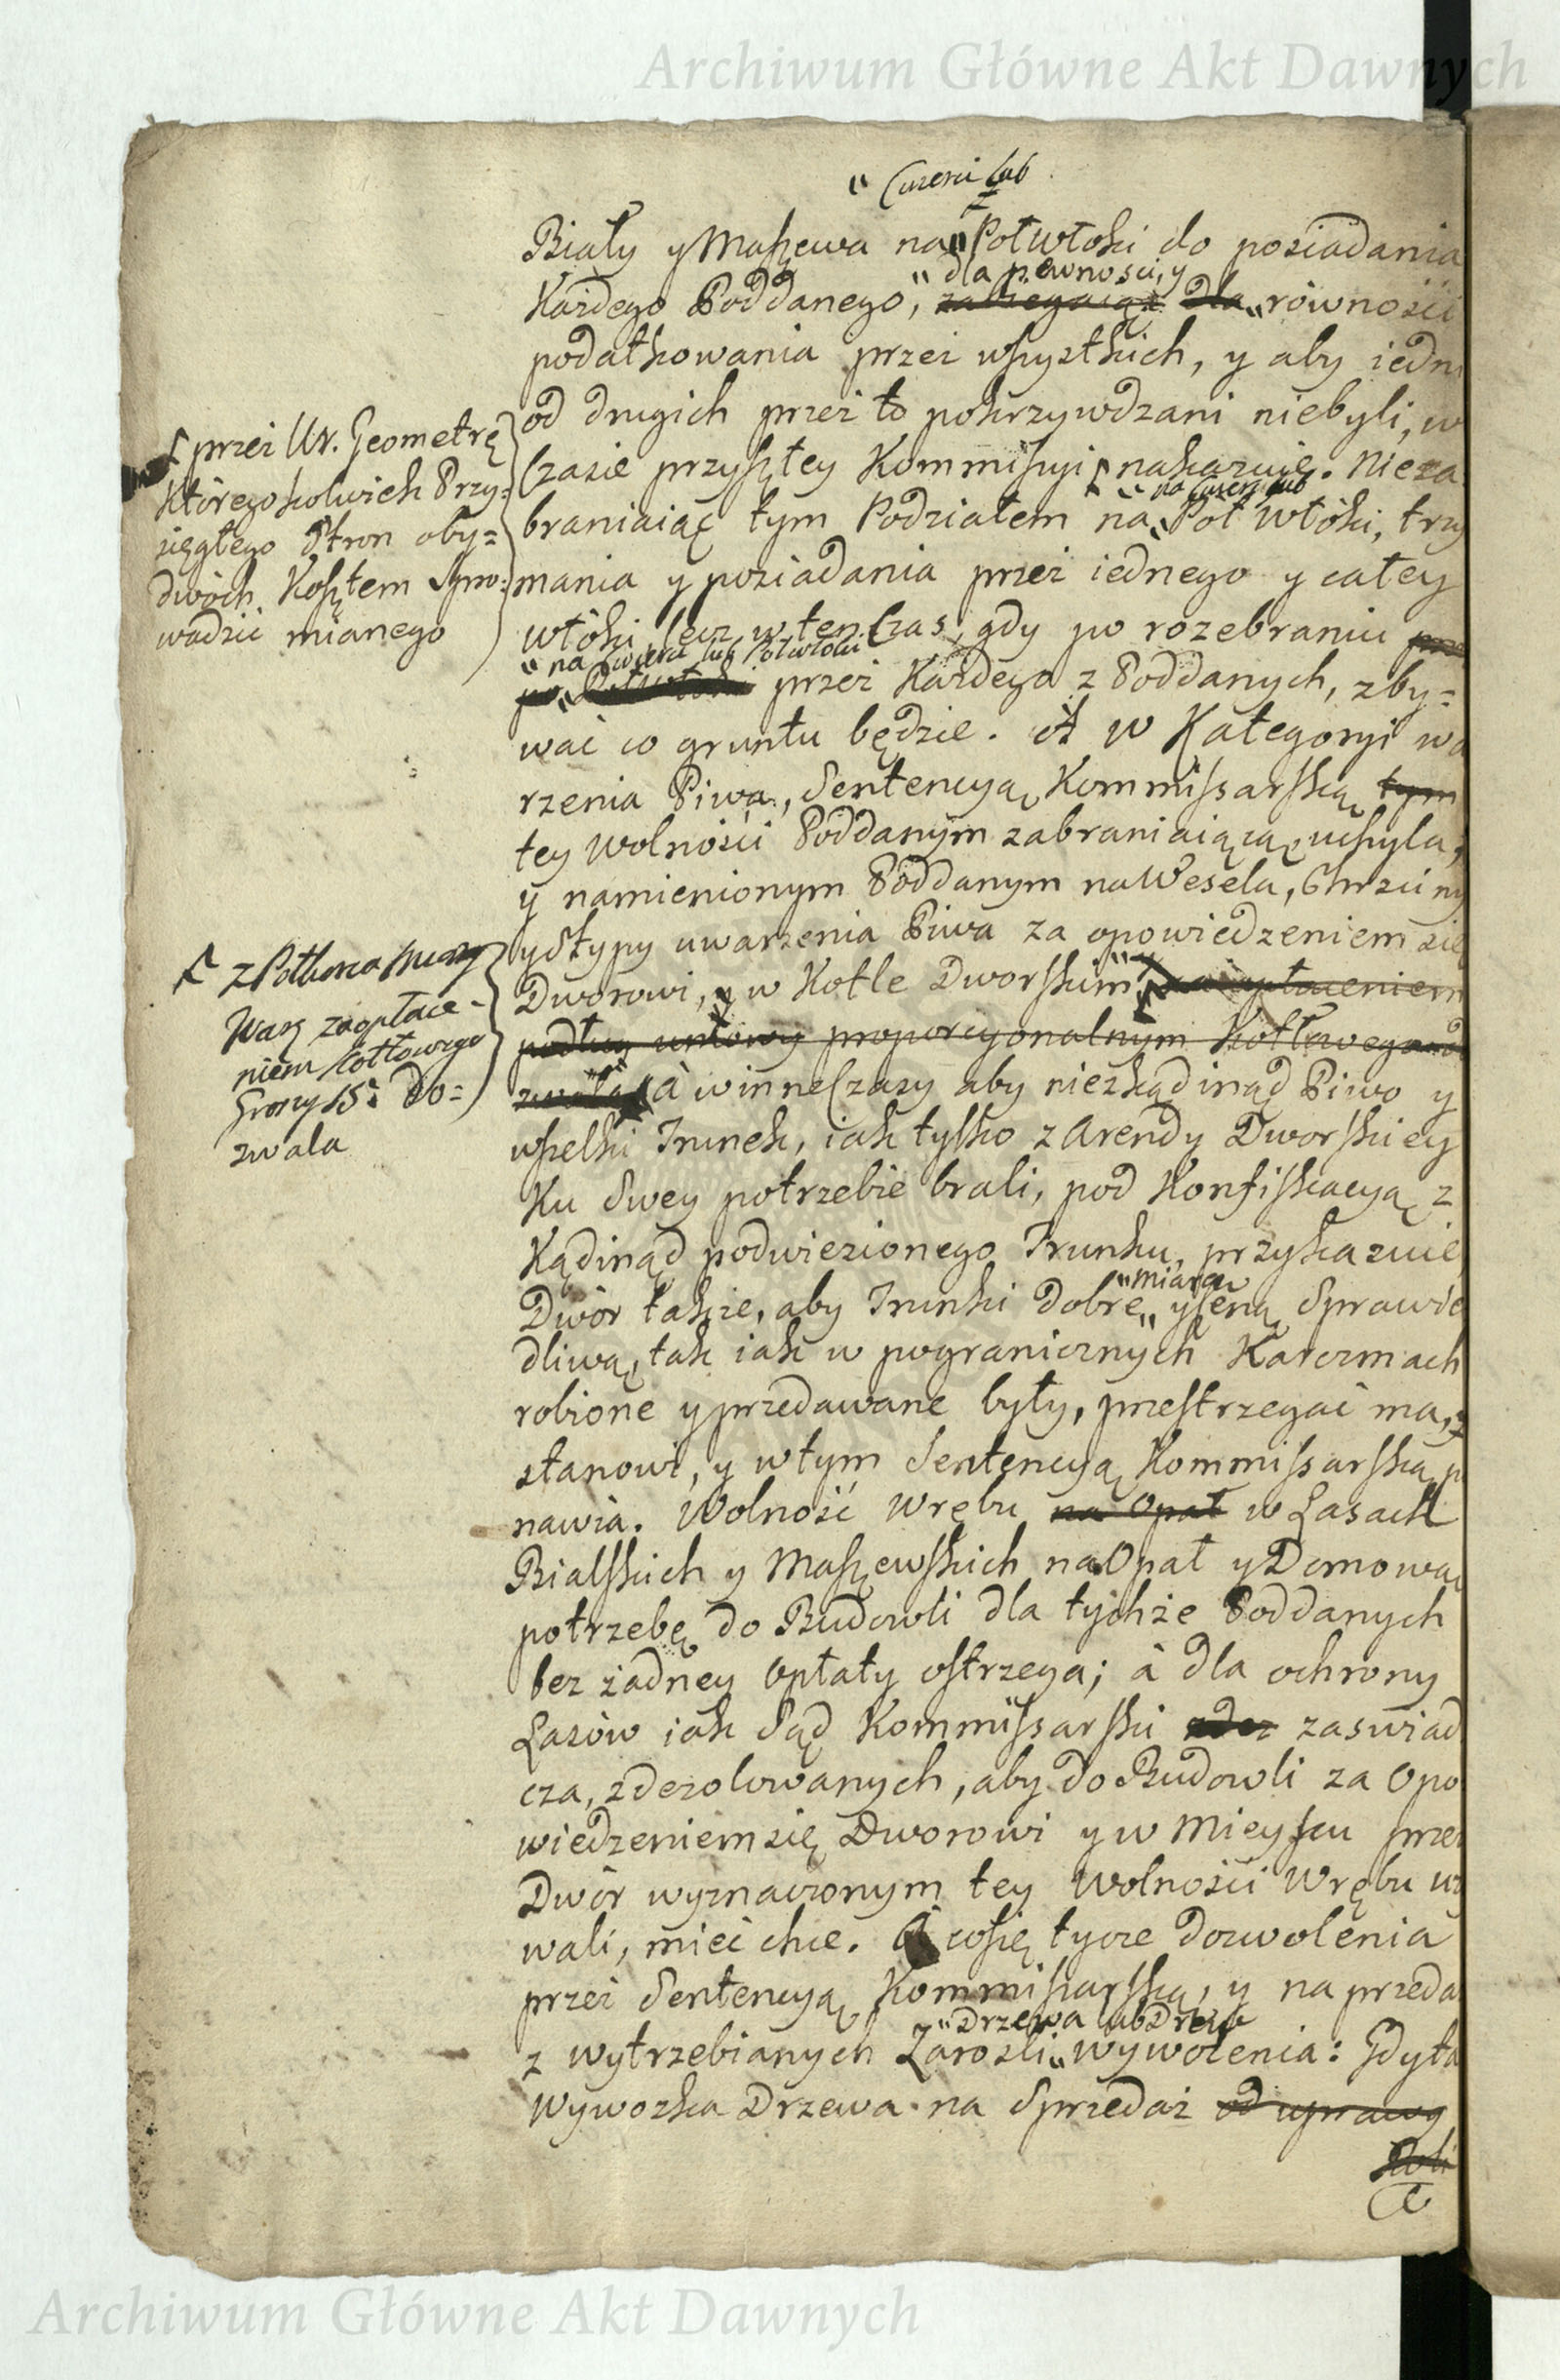 Archiwum Główne Akt Dawnych
" Cwierci lub
Biały y Maszewa na " Połwłoki do posiadania
" dla pewności, y
Każdego Poddanego, zabiegaiąc dla " równości
podatkowania przez wszystkich, y aby iedni
od drugich przez to pokrzywdzani niebyli, w
Czasie przyszłey Kommissyi nakazuie. Nieza
" na Cwierci lub
braniaiąc tym Podziałem na " Poł włóki, trzy
mania y posiadania przez iednego y całey
włóki, lecz w ten Czas, gdy po rozebraniu prze
" na Cwierci lub Połwłoki
po " Połwłoki przez Każdego z Poddanych, zby=
wać co gruntu będzie. A w Kategoryi wa
rzenia Piwa, Sentencyą Kommissarską tym
tey wolności Poddanym zabraniaiącą, uchyla,
y namienionym Poddanym na Wesela, Chrzciny
y Stypy uwarzenia Piwa za opowiedzeniem się
Dworowi, y w Kotle Dworskim za opłaceniem
podług umowy proporcyonalnym Kotłowego
zwala à w inne Czasy aby niezkądinąd Piwo y
wszelki Trunek, iak tylko z Arendy Dworskiey
Ku Swey potrzebie brali, pod Konfiskacyą z
Kądinąd podwiezionego Trunku, przykazuie,
" miarą
Dwór także, aby Trunki dobre " y Ceną Sprawie
dliwą, tak iak w pogranicznych Karczmach
robione y przedawane były, przestrzegać ma,
stanowi, y w tym Sentencyą Kommissarską p
nawia. Wolność Wrębu na Opał w Lasach
Bialskich y Maszewskich na Opał y Domową
potrzebę do Budowli dla tychże Poddanych
bez żadney Opłaty ostrzega; à dla ochrony
Lasów iak Sąd Kommissarski zaswiad
cza, zdezolowanych, aby do Budowli za Opo
wiedzeniem się Dworowi y w Mieyscu przez
Dwór wyznaczonym tey Wolności Wrębu uż
wali, mieć chce. A co się tycze dozwolenia
przez Sentencyą Kommissarską, y na przeda
" Drzewa lub Drew
z wytrzebianych Zarośli " wywożenia: Gdy ta
Wywozka Drzewa na Sprzedaż od uprawy
Roli
przez Ur. Geometrę
Któregokolwiek Przy=
sięgłego Stron oby=
dwóch Kosztem Spro=
wadzić mianego
z Połkorca Miary
Warsz za opłace=
niem Kotłowego
Groszy 15. do=
zwala
Archiwum Główne Akt Dawnych